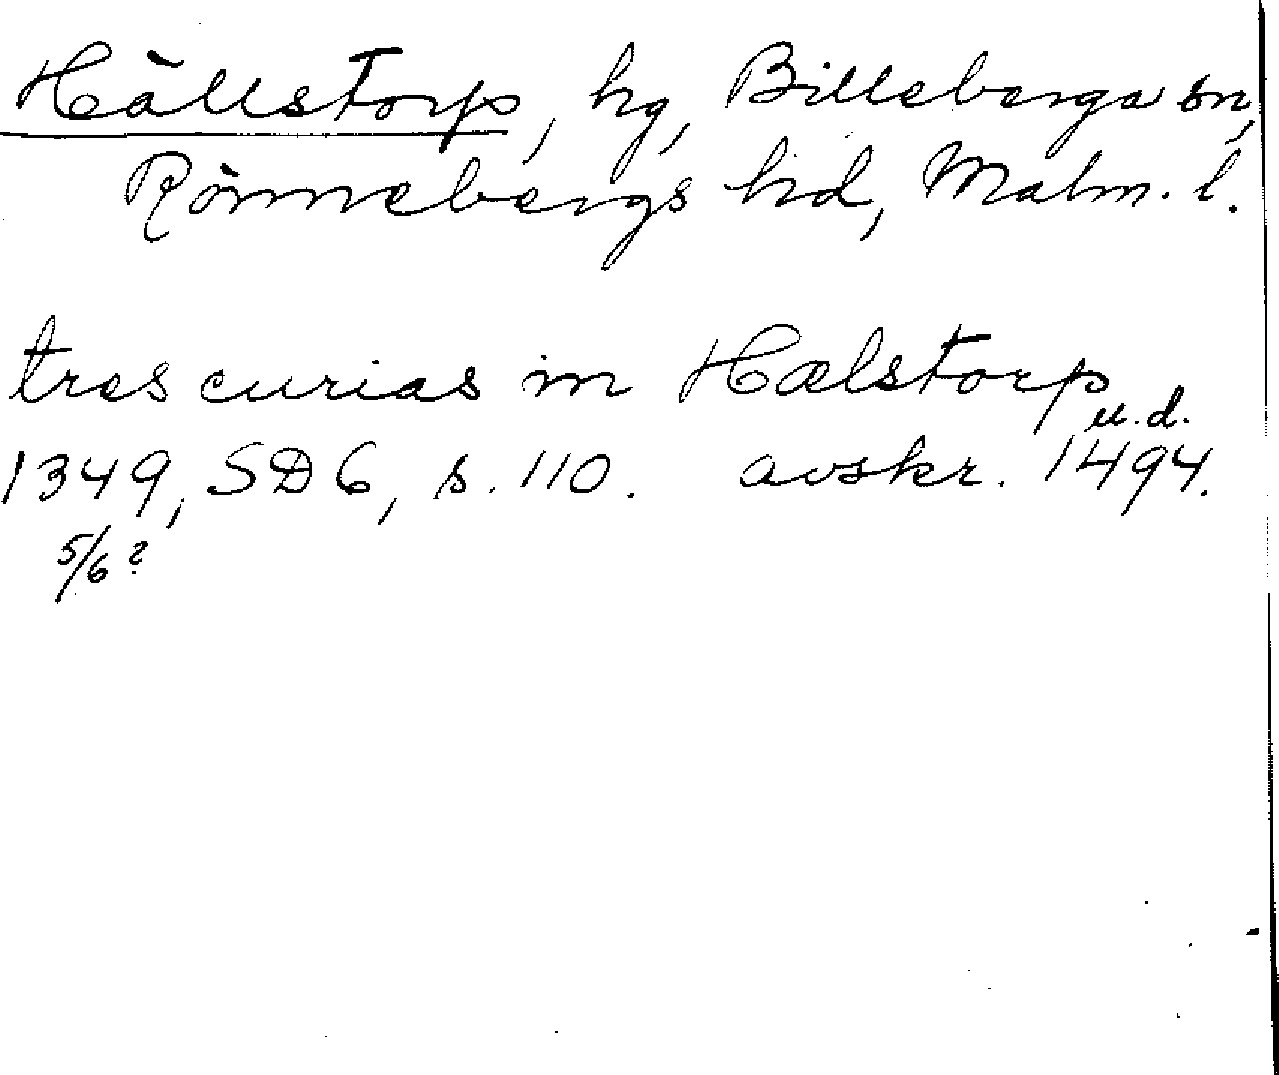 Hällstorp, hg, Billeberga sn,
Rönnebergs hd, Malm. l.
tres curias in Hælstorp
u.d.
1349, SD 6, s. 110. avskr. 1494.
5/6 ?